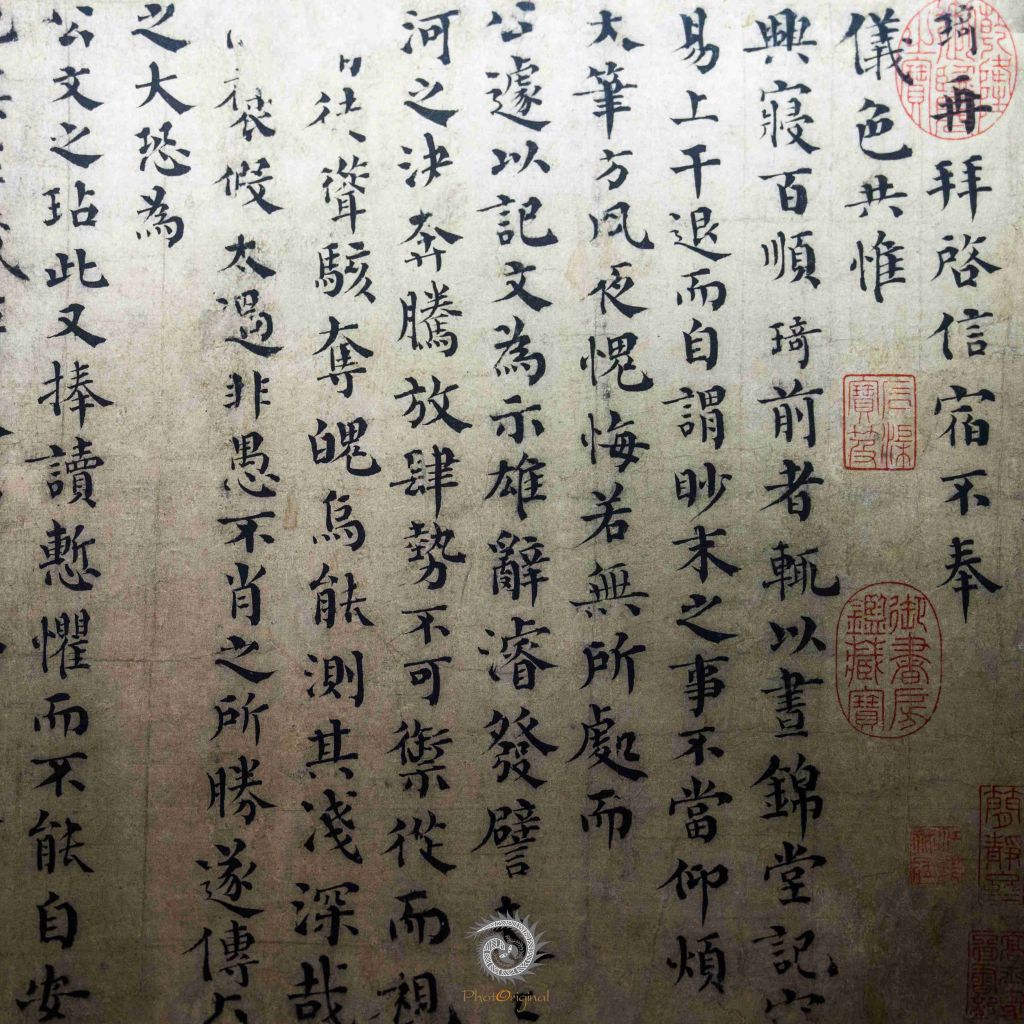 琦再拜啓信宿不奉
儀色共惟
興寢百順琦前者輒以晝錦堂記容
易上干退而自謂眇末之事不當仰煩
大筆方夙夜愧悔若無所處而
公遽以記文為示雄辭濬發譬
河之決奔騰放肆勢不可禦從而視
徒聳駭奪魄烏能測其淺深哉
褒假太過非愚不肖之所勝遂傳
之大恐為
公文之玷此又捧讀慙懼而不能自安
御書房鑑藏寶
PhotOriginal